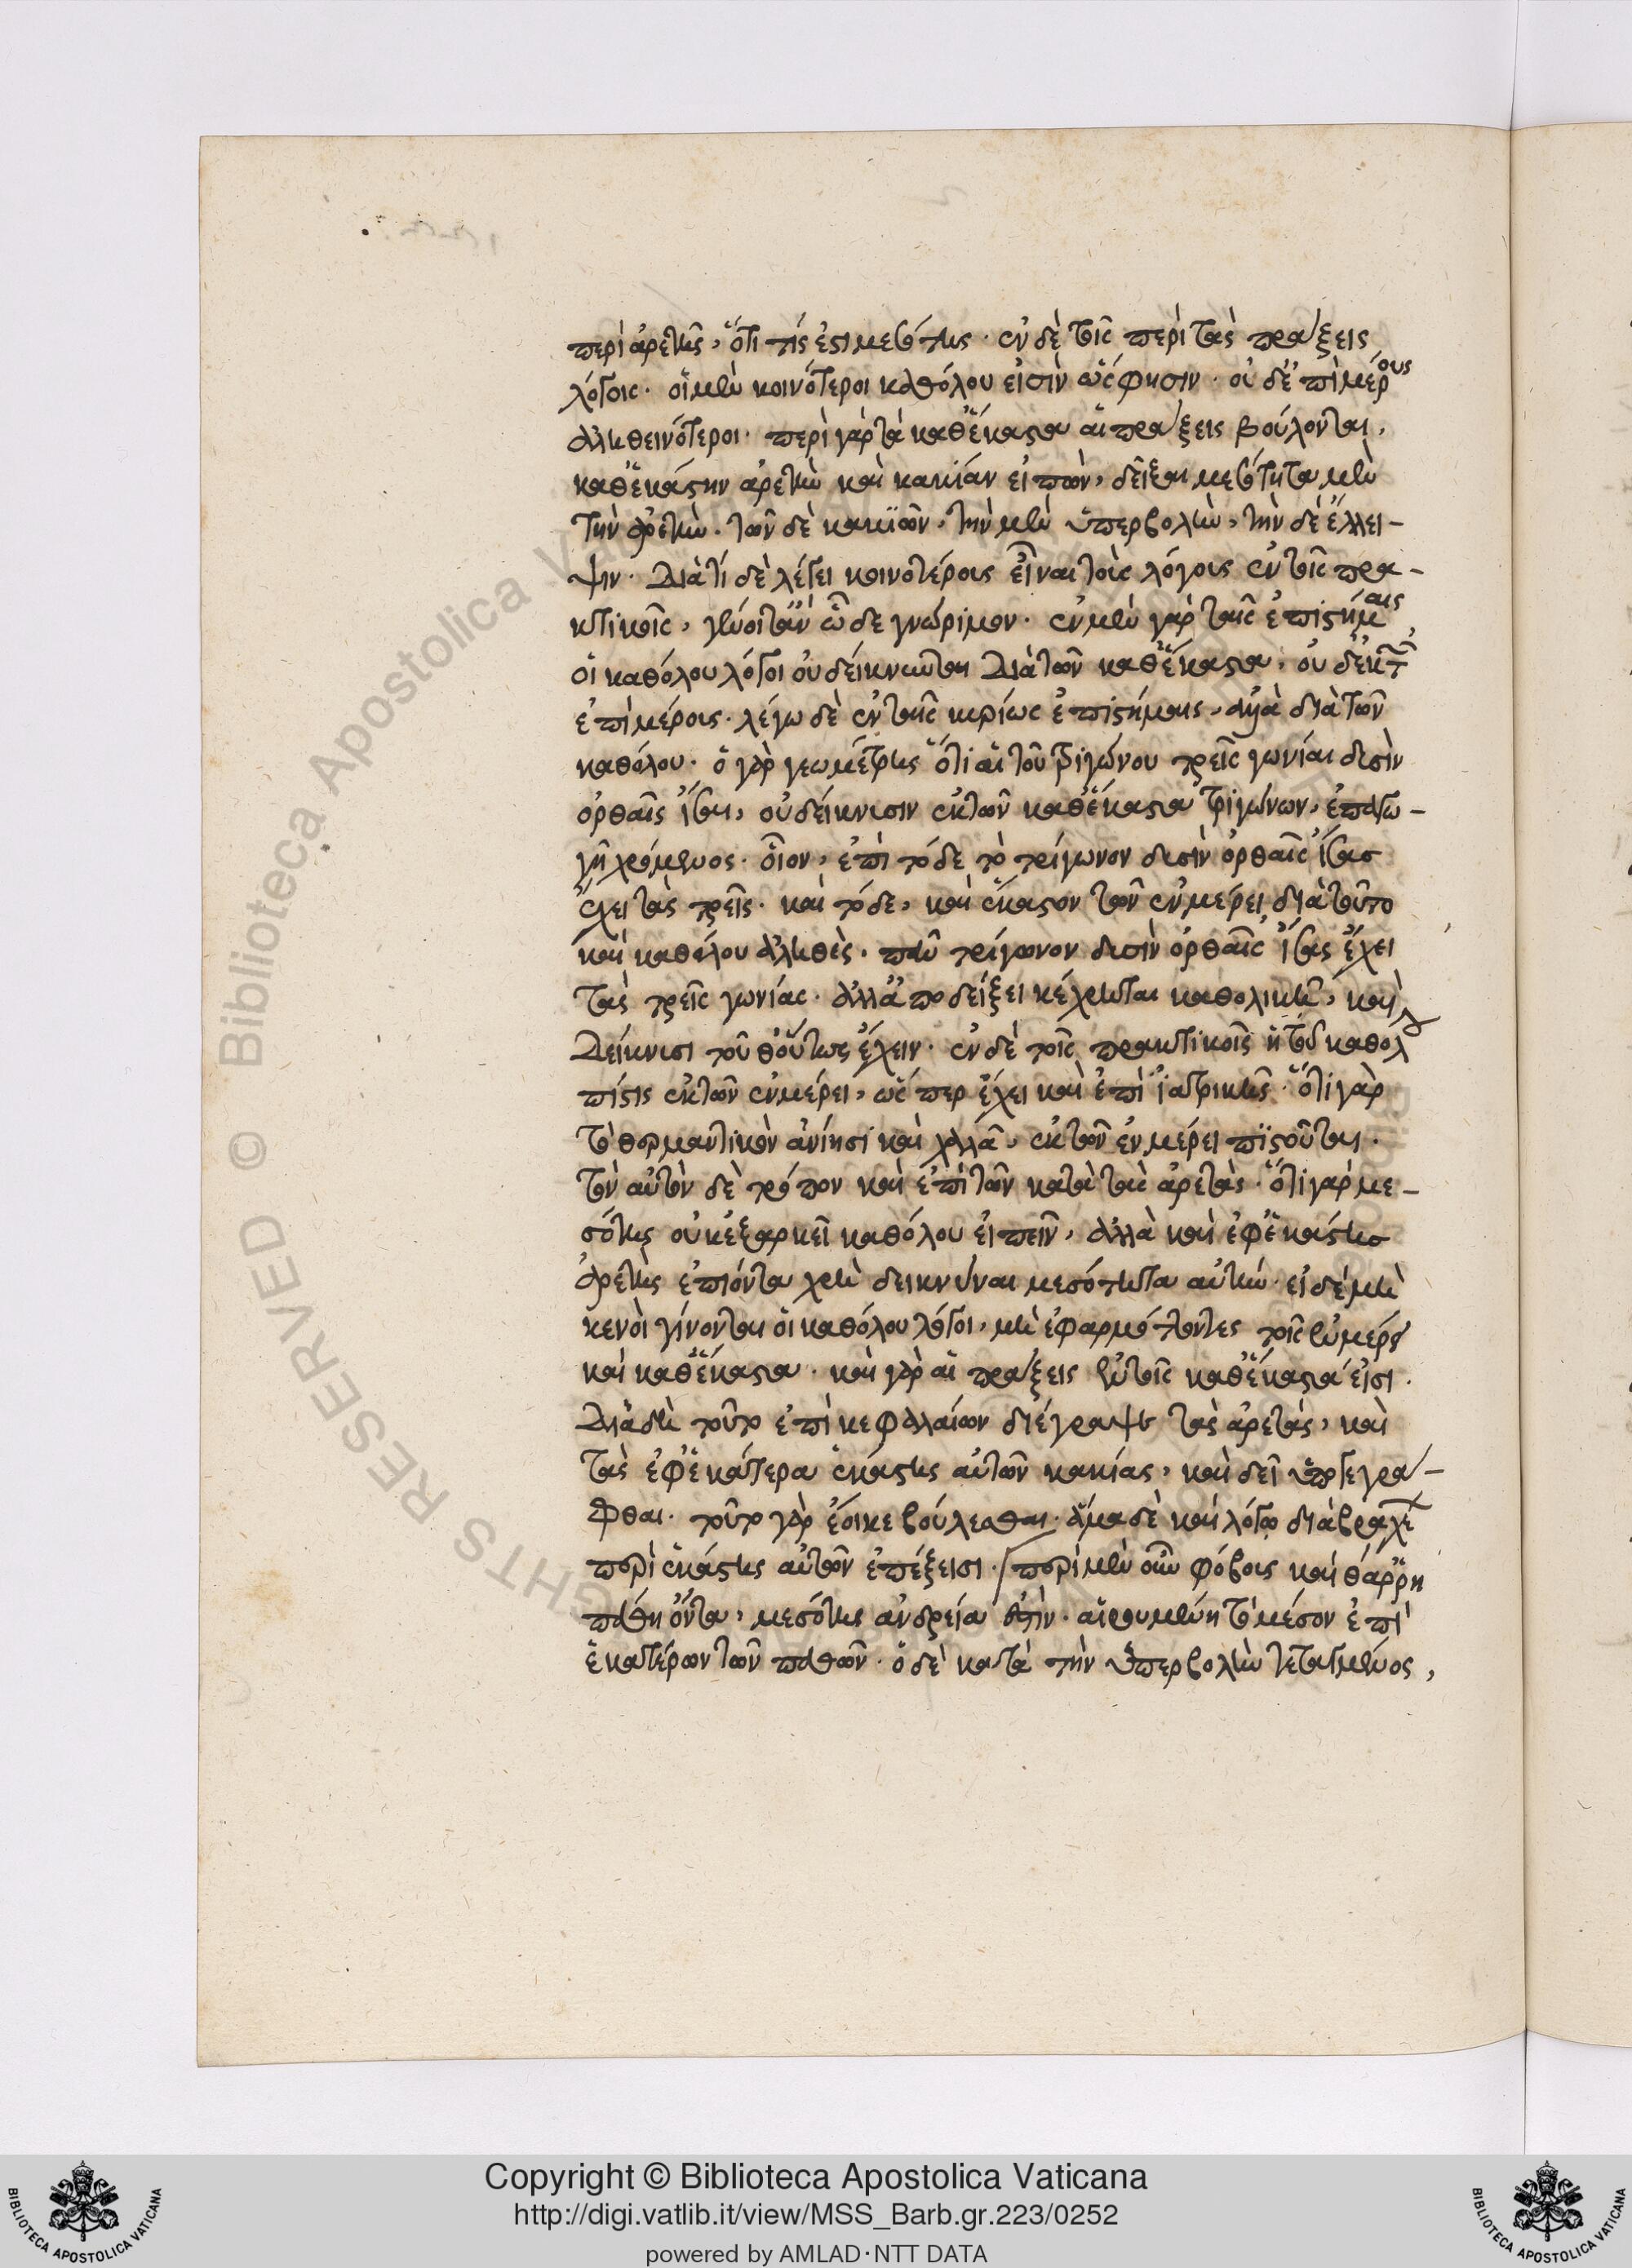 περὶ ἀρετῆς, ὅτι τίς ἐστι μεσότης. ἐν δὲ τοῖς περὶ τὰς πράξεις
λόγοις. οἱ μὲν κοινότεροι καθόλου εἰσὶν ὥς φησιν. οἱ δ' ἐπὶ μέρους
ἀληθεινότεροι. περὶ γὰρ τὰ καθ' ἕκαστα αἱ πράξεις βούλονται,
καθ' ἑκάστην ἀρετὴν καὶ κακίαν εἰπὼν, δεῖξαι μεσότητα μὲν
τὴν ἀρετὴν. τῶν δὲ κακιῶν, τὴν μὲν ὑπερβολὴν, τὴν δὲ ἔλλει-
ψιν. Διὰ τί δὲ λέγει κοινοτέροις εἶναι τοῖς λόγοις ἐν τοῖς πρα-
κτικοῖς, γένοιτ' ἂν ὧδε γνώριμον. ἐν μὲν γὰρ ταῖς ἐπιστήμαις,
οἱ καθόλου λόγοι οὐ δείκνυνται Διὰ τῶν καθ' ἕκαστα, οὐδ' ἐκ τῶν
ἐπὶ μέροις. λέγω δὲ ἐν ταῖς κυρίως ἐπιστήμαις, ἀλλὰ διὰ τῶν
καθόλου. ὁ γὰρ γεωμέτρης ὅτι αἱ τοῦ τριγώνου τρεῖς γωνίαι δυσὶν
ὀρθαῖς ἴσαι, οὐ δείκνυσιν ἐκ τῶν καθ' ἕκαστα τριγώνων, ἐπαγω-
γῇ χρόμενος. οἷον, ἐπὶ τόδε τὸ τρίγωνον δυσὶν ὀρθαῖς ἴσας
ἔχει τὰς τρεῖς. καὶ τόδε, καὶ ἕκαστον τῶν ἐν μέρει διὰ τοῦτο
καὶ καθόλου ἀληθὲς. πᾶν τρίγωνον δυσὶν ὀρθαῖς ἴσας ἔχει
τὰς τρεῖς γωνίας. ἀλλ' ἀποδείξει κέχρηται καθολικῇ, καὶ
Δείκνυσι τοῦθ' οὕτως ἔχειν. ἐν δὲ τοῖς πρακτικοῖς ἡ τοῦ καθόλ
πίστις ἐκ τῶν ἐν μέρει, ὥσπερ ἔχει καὶ ἐπὶ ἰατρικῆς. ὅτι γὰρ
τὸ θερμαντικὸν ἀνίησι καὶ χαλᾶ, ἐκ τῶν ἐν μέρει πιστοῦται.
τὸν αὐτὸν δὲ τρόπον καὶ ἐπὶ τῶν κατὰ τὰς ἀρετὰς. ὅτι γὰρ με-
σότης οὐκ ἐξαρκεῖ καθόλου εἰπεῖν, ἀλλὰ καὶ ἐφ' ἑκάστης
ἀρετῆς ἐπιόντα χρὴ δεικνύναι μεσότητα αὐτὴν. εἰ δὲ μὴ
κενοὶ γίνονται οἱ καθόλου λόγοι, μὴ ἐφαρμόττοντες τοῖς ἐν μέρει
καὶ καθ' ἕκαστα. καὶ γὰρ αἱ πράξεις ἐν τοῖς καθ' ἕκαστά εἰσι.
Διὰ δὴ τοῦτο ἐπὶ κεφαλαίων διέγραψε τὰς ἀρετὰς, καὶ
τὰς ἐφ' ἑκάτερα ἑκάστης αὐτῶν κακίας, καὶ δεῖ ὑπογεγρά-
φθαι. τοῦτο γὰρ ἔοικε βούλεσθαι. ἅμα δὲ καὶ λόγῳ διὰ βραχέων
περὶ ἑκάστης αὐτῶν ἐπέξεισι. περὶ μὲν οὖν φόβοις καὶ θάρρη
πάθη ὄντα, μεσότης ἀνδρεία ἐστὶν. αἱρουμένη τὸ μέσον ἐπὶ
ἑκατέρων τῶν παθῶν. ὁ δὲ κατὰ τὴν ὑπερβολὴν τεταγμένος,
Copyright © Biblioteca Apostolica Vaticana
http://digi.vatlib.it/view/MSS_Barb.gr.223/0252
powered by AMLAD·NTT DATA